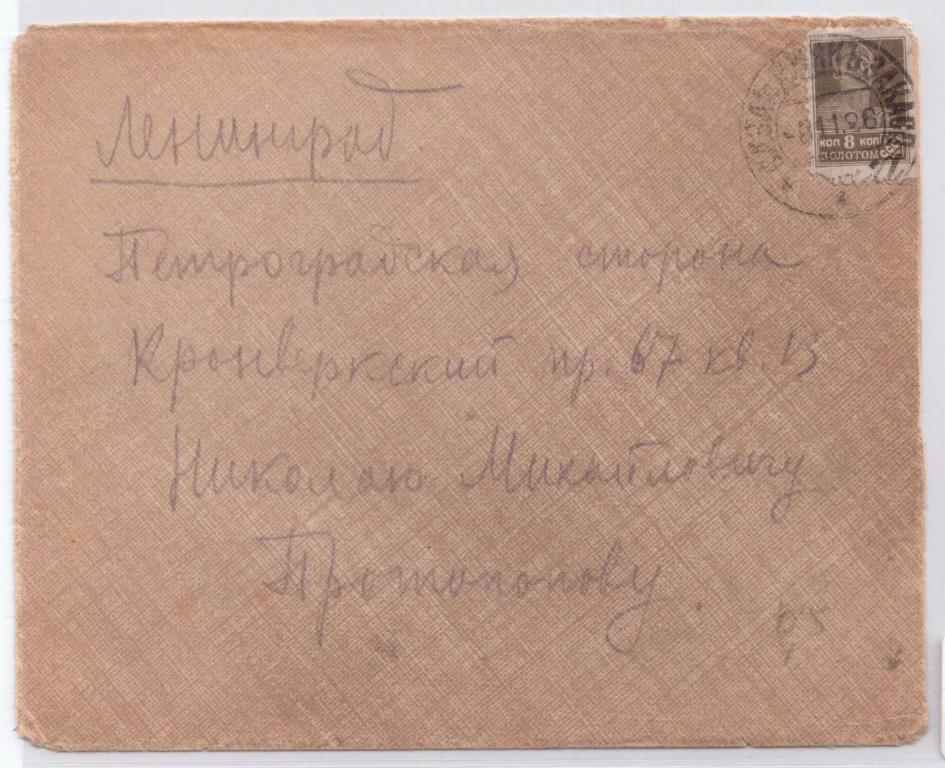 Ленинград
Петроградская сторона
Кронверкский пр. 67 кв. 13
Николаю Михайловичу
Протопопову.
8 11 26
КОП 8 КОП
ЗОЛОТОМ